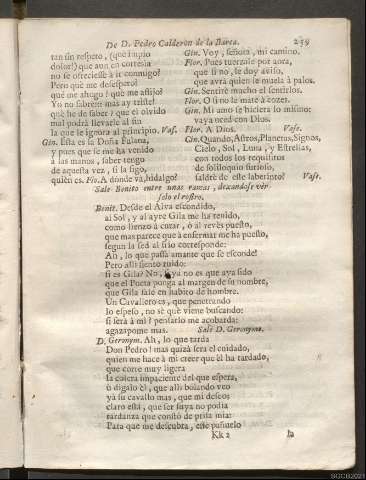 De D. Pedro Calderon de la Barca. 259
tan sin respeto, (què impio
dolor!) que aun en cortesia
no se ofreciesse à ir conmigo?
Pero què me desespero?
què me ahogo? què me aflijo?
Yo no sabrè: mas ay triste!
què he de saber? que el olvido
mal podrà llevarle al fin
la que le ignora al principio. Vas.
Gin. Esta es la Doña Fulana,
y pues que se me ha venido
à las manos, saber tengo
de aquesta vez, si la sigo,
quièn es. Flo. A dònde và, hidalgo?
Gin. Voy, señora, mi camino.
Flor. Pues tuerzale por aora,
que si no, le doy aviso,
que avrà quien le muela à palos.
Gin. Sentirè mucho el sentirlos.
Flor. O si no le matè à cozes.
Gin. Mi amo se hiciera lo mismo:
vaya uced con Dios.
Flor. A Dios. Vase.
Gin. Quando, Astros, Planetas, Signos,
Cielo, Sol, Luna, y Estrellas,
con todos los requisitos
de soliloquio furioso,
saldrè de este laberinto? Vase.
Sale Benito entre unas ramas, dexandose ver
solo el rostro.
Benit. Desde el Alva escondido,
al Sol, y al ayre Gila me ha tenido,
como lienzo à curar, ò al revès puesto,
que mas parece que à enfermar me ha puesto,
segun la sed al sitio corresponde:
Ah, lo que passa amante que se esconde!
Pero alli siento ruido:
si es Gila? No, si ya no es que aya sido
que el Poeta ponga al margen de su nombre,
que Gila sale en habito de hombre.
Un Cavallero es, que penetrando
lo espeso, no sè què viene buscando:
si serà à mì? pensarlo me acobarda:
agazapome mas. Sale D. Geronymo.
D. Geronym. Ah, lo que tarda
Don Pedro! mas quizà serà el cuidado,
quien me hace à mi creer que èl ha tardado,
que corre muy ligera
la colera impaciente del que espera,
ò digalo èl, que alli bolando veo
yà su cavallo mas, que mi deseo;
claro està, que ser suya no podia
tardanza que constò de prisa mia:
Para que me descubra, este pañuelo
Kk 2 la